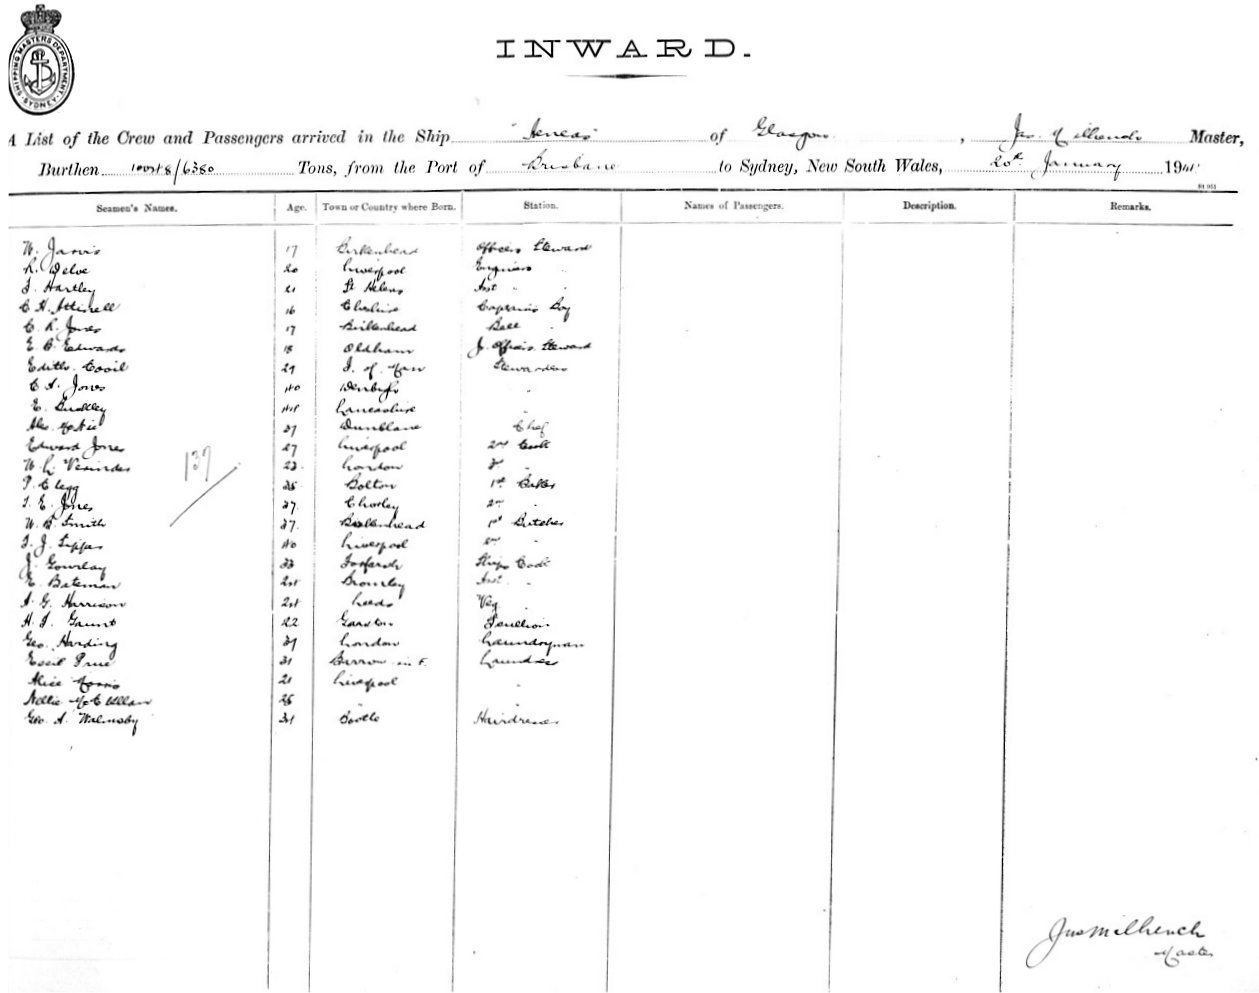 SHIPPING MASTERS DEPARTMENT SYDNEY
INWARD.
A List of the Crew and Passengers arrived in the Ship "Aeneas" of Glasgow, Jas. Master,
Burthen 10058/6380 Tons, from the Port of Brisbane to Sydney, New South Wales, 20th January 19
Seamen's Names. Age. Town or Country where Born. Station. Names of Passengers. Description. Remarks.
W. Jarvis 17 Birkenhead Officers Steward
R. Delve 20 Liverpool Engineers "
J. Hartley 21 St Helens Asst " "
C. H. 16 Cheshire Captains Boy
C. R. Jones 17 Birkenhead Bell "
E. C. Edwards 18 Oldham J. Officers Steward
Edith 29 I. of Man Stewardess
C. A. Jones 40 Denbigh "
E. Lancashire "
Alex. McNie 37 Dunblane Chef
Edward Jones 27 Liverpool 2nd Cook
W. L. 23 London 3rd "
P. Clegg 35 Bolton 1st Baker
T. E. Jones 37 Chorley 2nd "
137
W. Smith 37 Birkenhead 1st Butcher
T. J. 40 Liverpool 2nd "
J. Gourlay 33 Ships Cook
E. Bateman 24 Bromley Asst " "
A. G. Harrison 24 Leeds Veg "
H. J. Gaunt 22 Garston Scullion
Geo. Harding 39 London Laundryman
31 Barrow in F. Laundress
Alice 21 Liverpool "
Nellie McClellan 25 " "
Geo. A. Walmsley 34 Bootle Hairdresser
Master